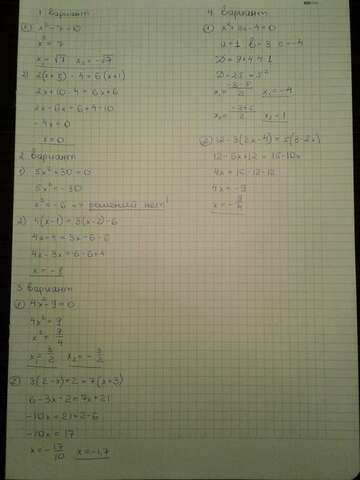 1 вариант
1) x² - 7 = 0
x² = 7
x₁ = √7 x₂ = -√7
2) 2(x+5) - 4 = 6(x+1)
2x + 10 - 4 = 6x + 6
2x - 6x = 6 + 4 - 10
-4x = 0
x = 0
2 вариант
1) 5x² + 30 = 0
5x² = -30
x² = -6 => решений нет!
2) 4(x-1) = 3(x-2) - 6
4x - 4 = 3x - 6 - 6
4x - 3x = -6 - 6 + 4
x = -8
3 вариант
1) 4x² - 9 = 0
4x² = 9
x² = 9/4
x₁ = 3/2 x₂ = -3/2
2) 3(2-x) - 2 = 7(x+3)
6 - 3x - 2 = 7x + 21
-10x = 21 + 2 - 6
-10x = 17
x = -17/10 x = -1,7
4 вариант
1) x² + 3x - 4 = 0
a = 1 b = 3 c = -4
D = 9 + 4·4·1
D = 25 = 5²
x₁ = (-3-5)/2 x₁ = -4
x₂ = (-3+5)/2 x₂ = 1
2) 12 - 3(2x-4) = 5(3-2x)
12 - 6x + 12 = 15 - 10x
4x = 15 - 12 - 12
4x = -9
x = -9/4